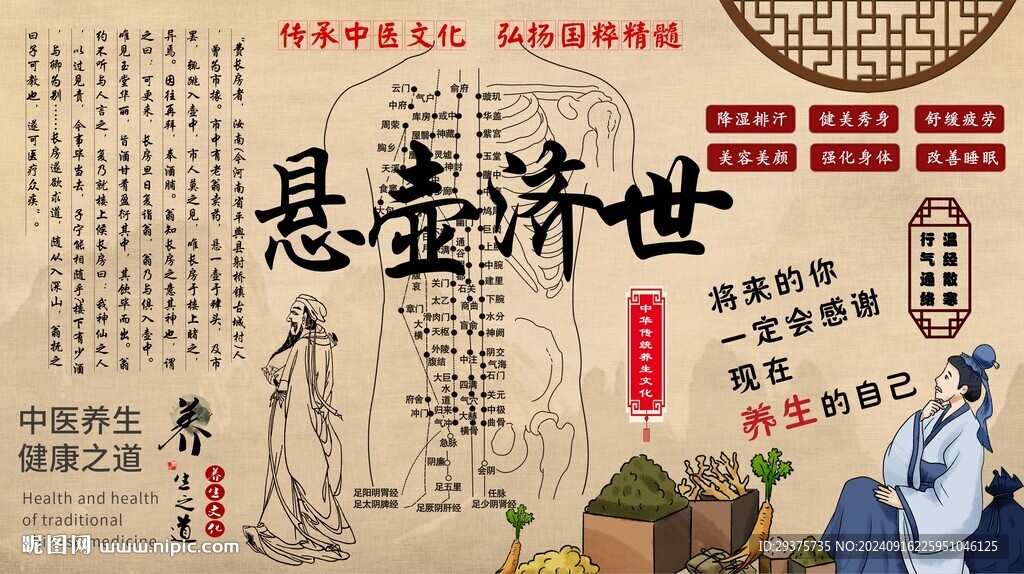 传承中医文化 弘扬国粹精髓
“费长房者，汝南（今河南省平舆县射桥镇古城村）人
，曾为市掾。市中有老翁卖药，悬一壶于肆头，及市
罢，辄跳入壶中，市人莫之见，唯长房于楼上睹之，
异焉。因往再拜，奉酒脯。翁知长房之意其神也，谓
之曰：可更来，长房旦日复诣翁，翁乃与俱入壶中。
唯见玉堂华丽，旨酒甘肴盈衍其中，其饮毕而出。翁
约不听与人言之，复乃就楼上候长房曰：我神仙之人
，以过见责，今事毕当去，子宁能相随乎？楼下有少酒
，与卿为别……长房遂欲求道，随从入深山，翁抚之
曰子可教也，遂可医疗众疾”。
悬壶济世
降湿排汗 健美秀身 舒缓疲劳
美容美颜 强化身体 改善睡眠
温经散寒
行气通络
将来的你
一定会感谢
现在
养生的自己
中华传统养生文化
中医养生
健康之道
Health and health
of traditional
medicine
养
生之道
养生文化
云门
气户
俞府
璇玑
中府
库房
或中
华盖
周荣
屋翳
神藏
紫宫
胸乡
灵墟
玉堂
天溪
神封
膻中
食窦
大包
鸠尾
巨阙
通谷
中脘
建里
关门
石关
太乙
商曲
下脘
章门
滑肉门
水分
大横
天枢
肓俞
神阙
外陵
阴交
腹结
中注
气海
石门
大巨
四满
水道
气穴
关元
府舍
归来
大赫
中极
冲门
气冲
横骨
曲骨
急脉
阴廉
会阴
足五里
足阳明胃经
足太阴脾经
足厥阴肝经
任脉
足少阴肾经
昵图网 www.nipic.com
ID:29375735 NO:20240916225951046125